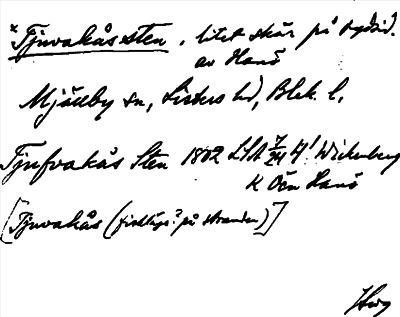 *Tjuvakås sten, litet skär på sydsid.
av Hanö
Mjällby sn, Listers hd, Blek. l.
Tjufvakås Sten 1802 LSA 7/24 4¹ Wickenberg
K Öön Hanö
[Tjuvakås (fiskläge? på stranden)]